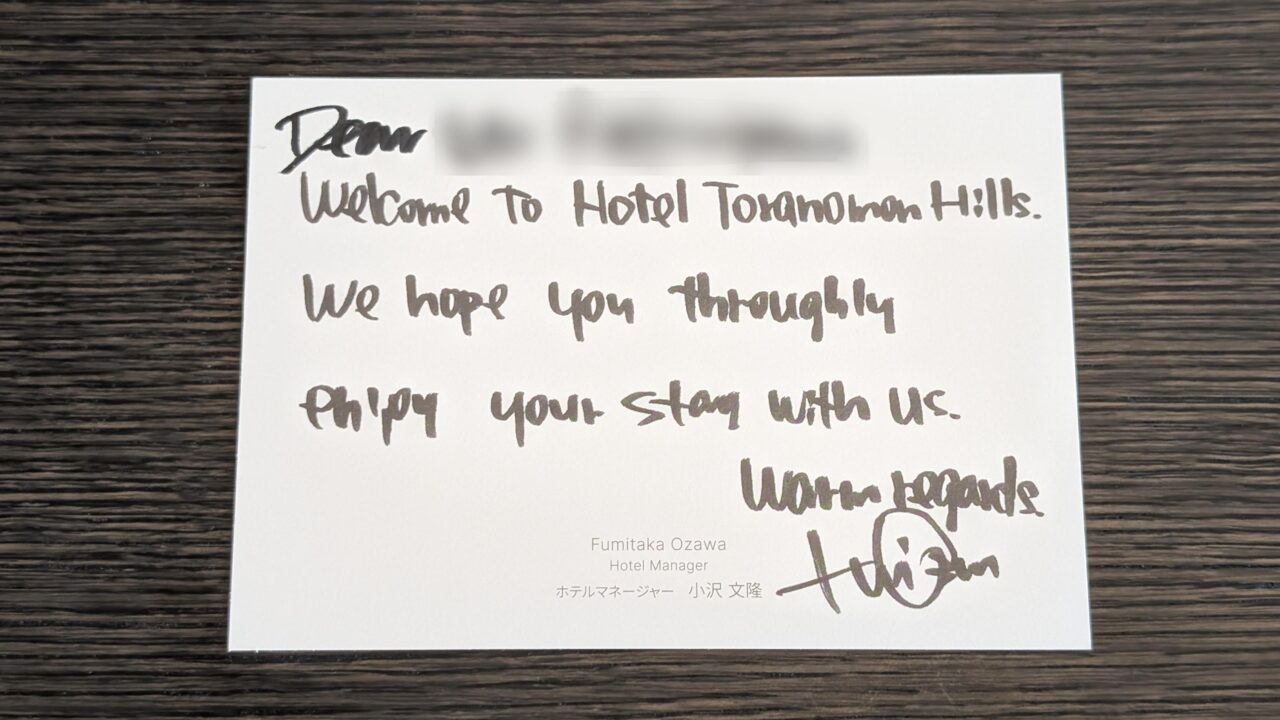 Dear
Welcome to Hotel Toranomon Hills.
We hope you throughly
enjoy your stay with us.
Warm regards
Fumitaka Ozawa
Hotel Manager
ホテルマネージャー 小沢 文隆